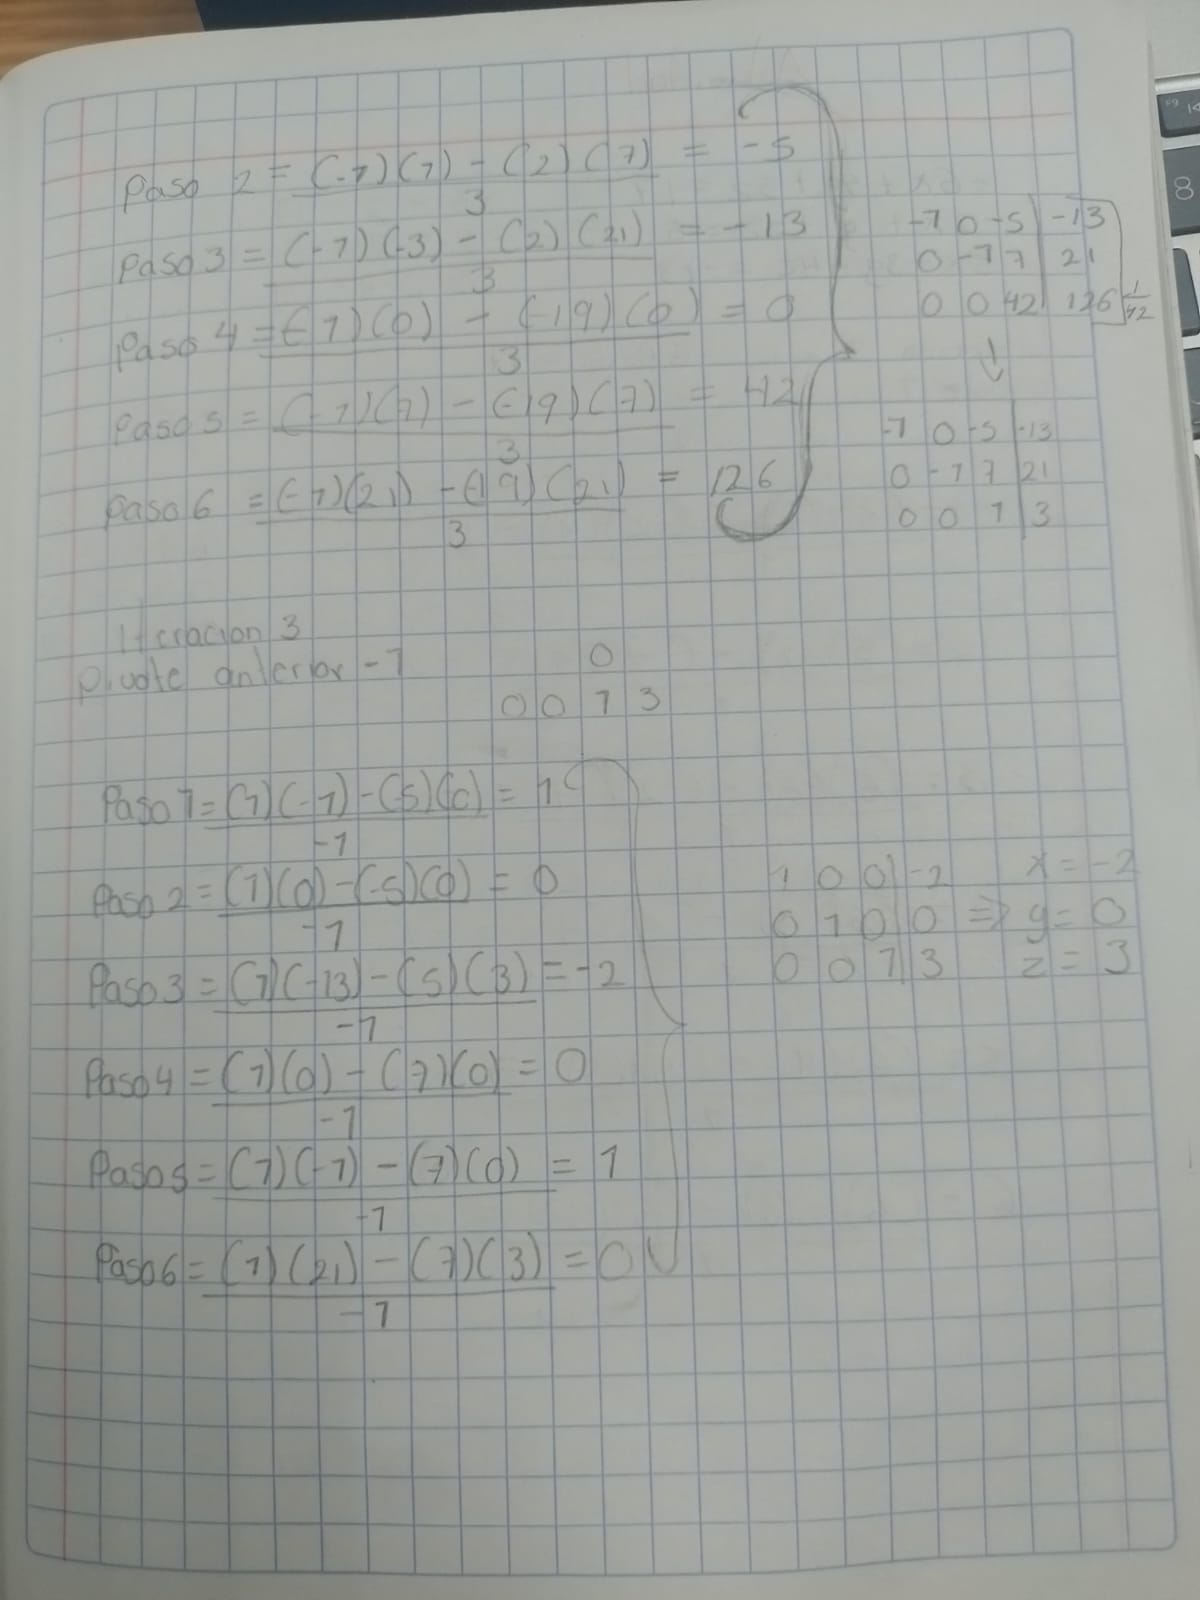 Paso 2 = (-7)(7) - (2)(7) = -5
3
Paso 3 = (-7)(-3) - (2)(21) = -13
3
Paso 4 = (-7)(0) - (-19)(0) = 0
3
Paso 5 = (-7)(7) - (-19)(7) = 42
3
Paso 6 = (-7)(21) - (-19)(21) = 126
3
-7 0 -5 | -13
0 -7 7 | 21
0 0 42 | 126 1/42
↓
-7 0 -5 | -13
0 -7 7 | 21
0 0 1 | 3
Iteracion 3
Pivote anterior -7
0
0 0 1 3
Paso 1 = (1)(-7) - (-5)(0) = 1
-7
Paso 2 = (1)(0) - (-5)(0) = 0
-7
Paso 3 = (1)(-13) - (5)(3) = -2
-7
Paso 4 = (1)(0) - (7)(0) = 0
-7
Paso 5 = (1)(-7) - (7)(0) = 1
-7
Paso 6 = (1)(21) - (7)(3) = 0
-7
1 0 0 | -2 x = -2
0 1 0 | 0 ⇒ y = 0
0 0 1 | 3 z = 3
F9 K
8